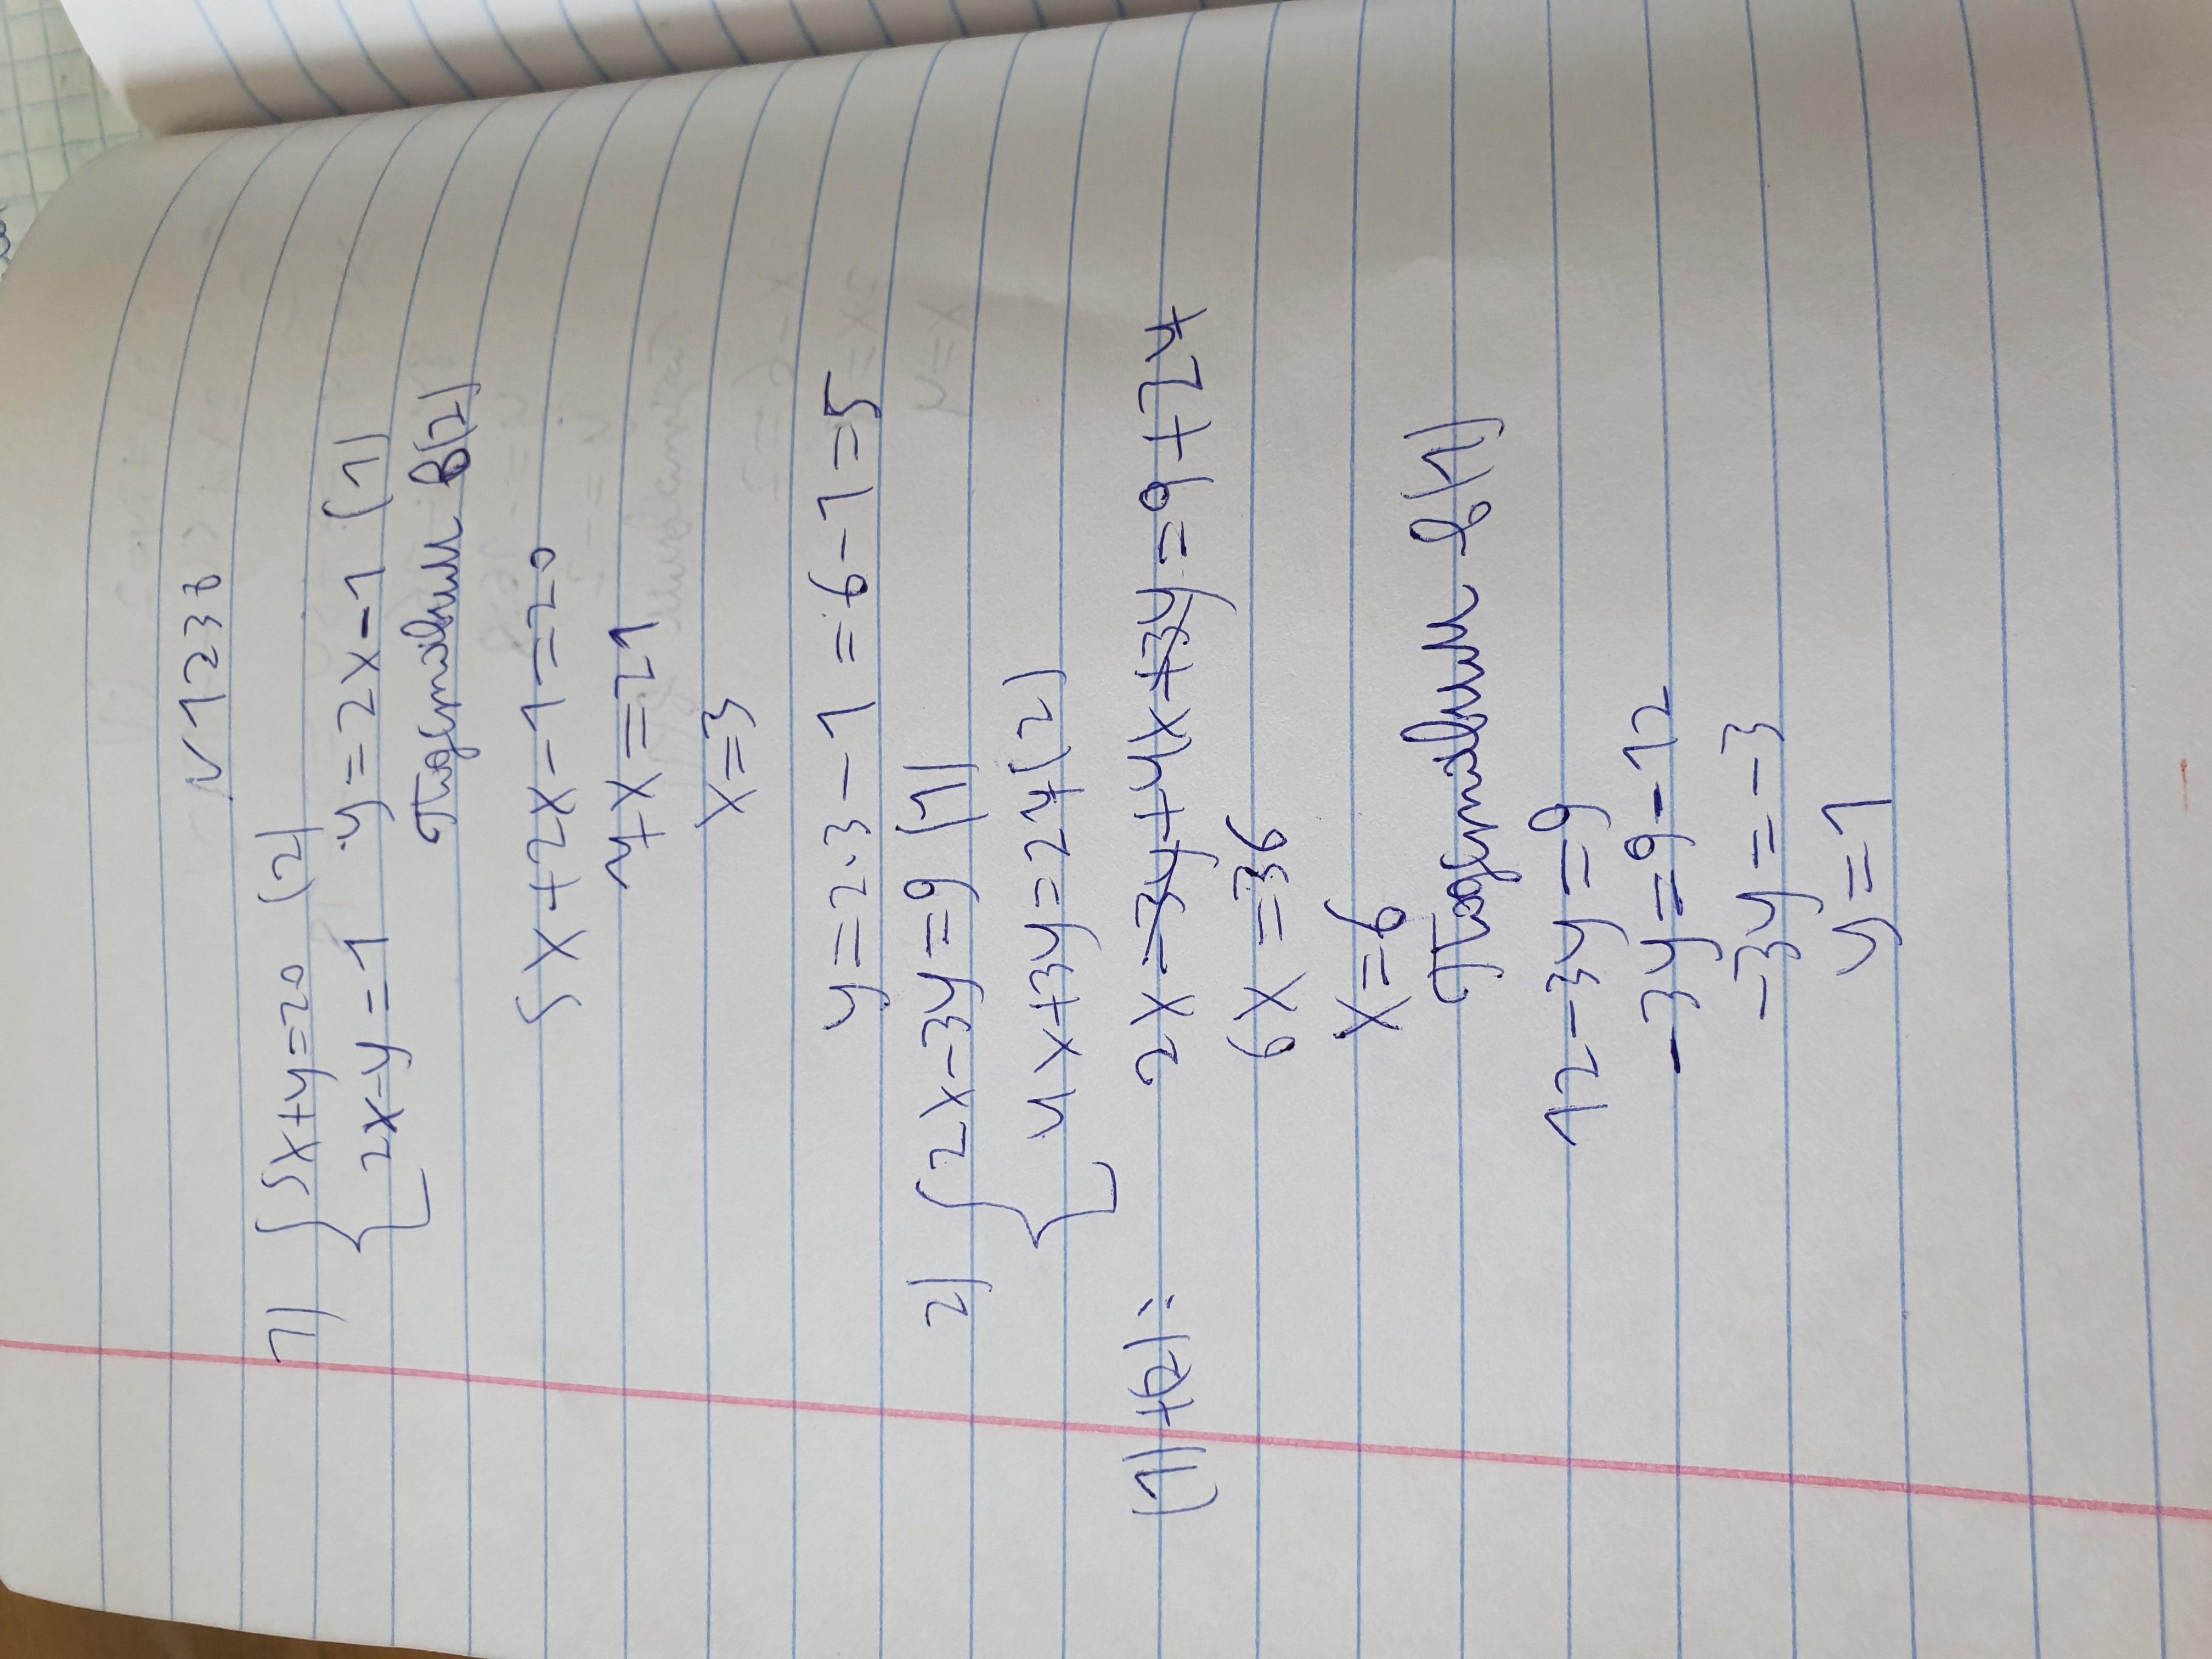 N 1238
1) { 5x+y=20 (2)
2x-y=1 y=2x-1 (1)
Подставим в(2)
5x+2x-1=20
7x=21
x=3
y=2·3-1=6-1=5
2) { 2x-3y=9 (1)
4x+3y=27 (2)
(1)+(2): 2x-3y+4x+3y=9+27
6x=36
x=6
Подставим в(1)
12-3y=9
-3y=9-12
-3y=-3
y=1